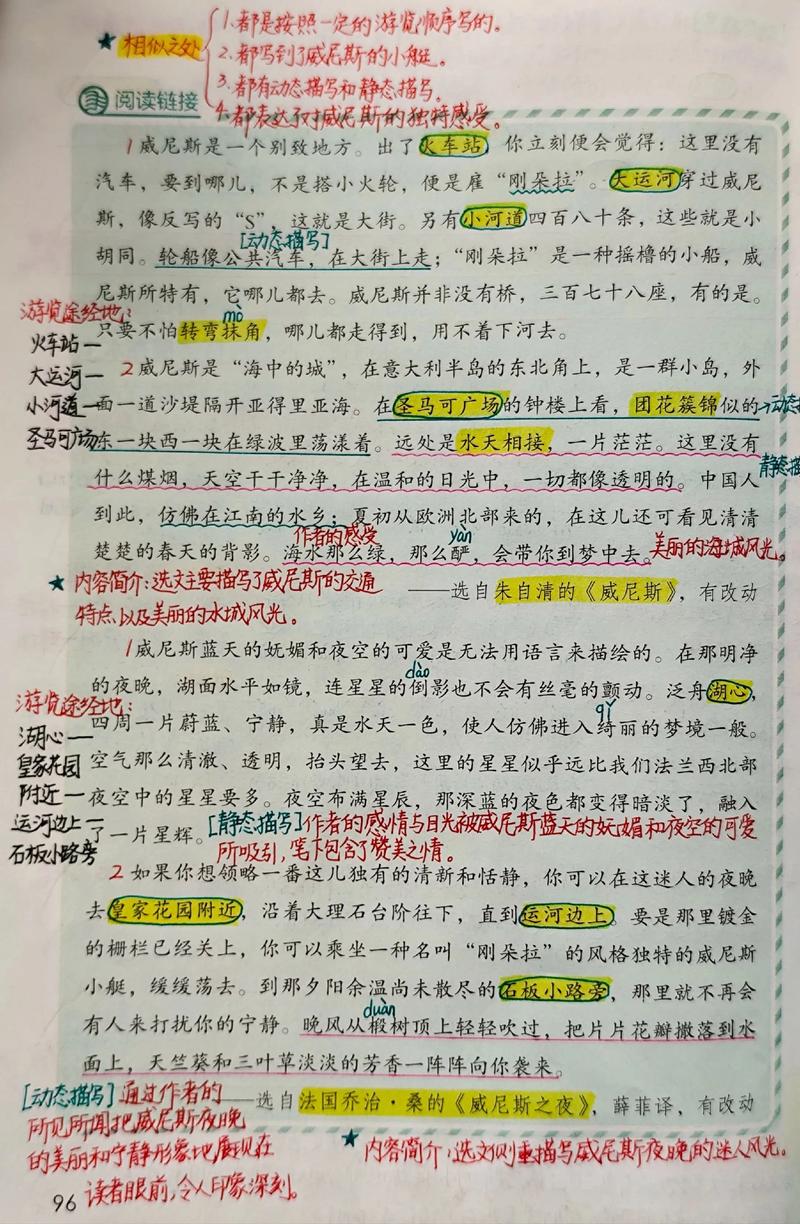 ★ 相似之处
1.都是按照一定的游览顺序写的。
2.都写到了威尼斯的小艇。
3.都有动态描写和静态描写。
4.都表达了对威尼斯的独特感受。
阅读链接
1威尼斯是一个别致地方。出了火车站，你立刻便会觉得：这里没有
汽车，要到哪儿，不是搭小火轮，便是雇“刚朵拉”。大运河穿过威尼
斯，像反写的“S”，这就是大街。另有小河道四百八十条，这些就是小
[动态描写]
胡同。轮船像公共汽车，在大街上走；“刚朵拉”是一种摇橹的小船，威
尼斯所特有，它哪儿都去。威尼斯并非没有桥，三百七十八座，有的是。
mò
只要不怕转弯抹角，哪儿都走得到，用不着下河去。
游览途经地：
火车站—
大运河—
小河道—
圣马可广场
2威尼斯是“海中的城”，在意大利半岛的东北角上，是一群小岛，外
面一道沙堤隔开亚得里亚海。在圣马可广场的钟楼上看，团花簇锦似的
→动态描
东一块西一块在绿波里荡漾着。远处是水天相接，一片茫茫。这里没有
静态描
什么煤烟，天空干干净净，在温和的日光中，一切都像透明的。中国人
到此，仿佛在江南的水乡；夏初从欧洲北部来的，在这儿还可看见清清
作者的感受
yàn
楚楚的春天的背影。海水那么绿，那么酽，会带你到梦中去。
美丽的海城风光。
★ 内容简介：选文主要描写了威尼斯的交通
特点以及美丽的水城风光。
——选自朱自清的《威尼斯》，有改动
1威尼斯蓝天的妩媚和夜空的可爱是无法用语言来描绘的。在那明净
dào
的夜晚，湖面水平如镜，连星星的倒影也不会有丝毫的颤动。泛舟湖心，
qǐ
四周一片蔚蓝、宁静，真是水天一色，使人仿佛进入绮丽的梦境一般。
空气那么清澈、透明，抬头望去，这里的星星似乎远比我们法兰西北部
夜空中的星星要多。夜空布满星辰，那深蓝的夜色都变得暗淡了，融入
了一片星辉。
[静态描写]作者的感情与目光被威尼斯蓝天的妩媚和夜空的可爱
所吸引，笔下包含了赞美之情。
游览途经地：
湖心—
皇家花园
附近—
运河边上—
石板小路旁
2如果你想领略一番这儿独有的清新和恬静，你可以在这迷人的夜晚
去皇家花园附近，沿着大理石台阶往下，直到运河边上。要是那里镀金
的栅栏已经关上，你可以乘坐一种名叫“刚朵拉”的风格独特的威尼斯
小艇，缓缓荡去。到那夕阳余温尚未散尽的石板小路旁，那里就不再会
duàn
有人来打扰你的宁静。晚风从椴树顶上轻轻吹过，把片片花瓣撒落到水
面上，天竺葵和三叶草淡淡的芳香一阵阵向你袭来。
——选自法国乔治·桑的《威尼斯之夜》，薛菲译，有改动
[动态描写]通过作者的
所见所闻把威尼斯夜晚
的美丽和宁静形象地展现在
读者眼前，令人印象深刻。
★ 内容简介：选文侧重描写威尼斯夜晚的迷人风光。
96